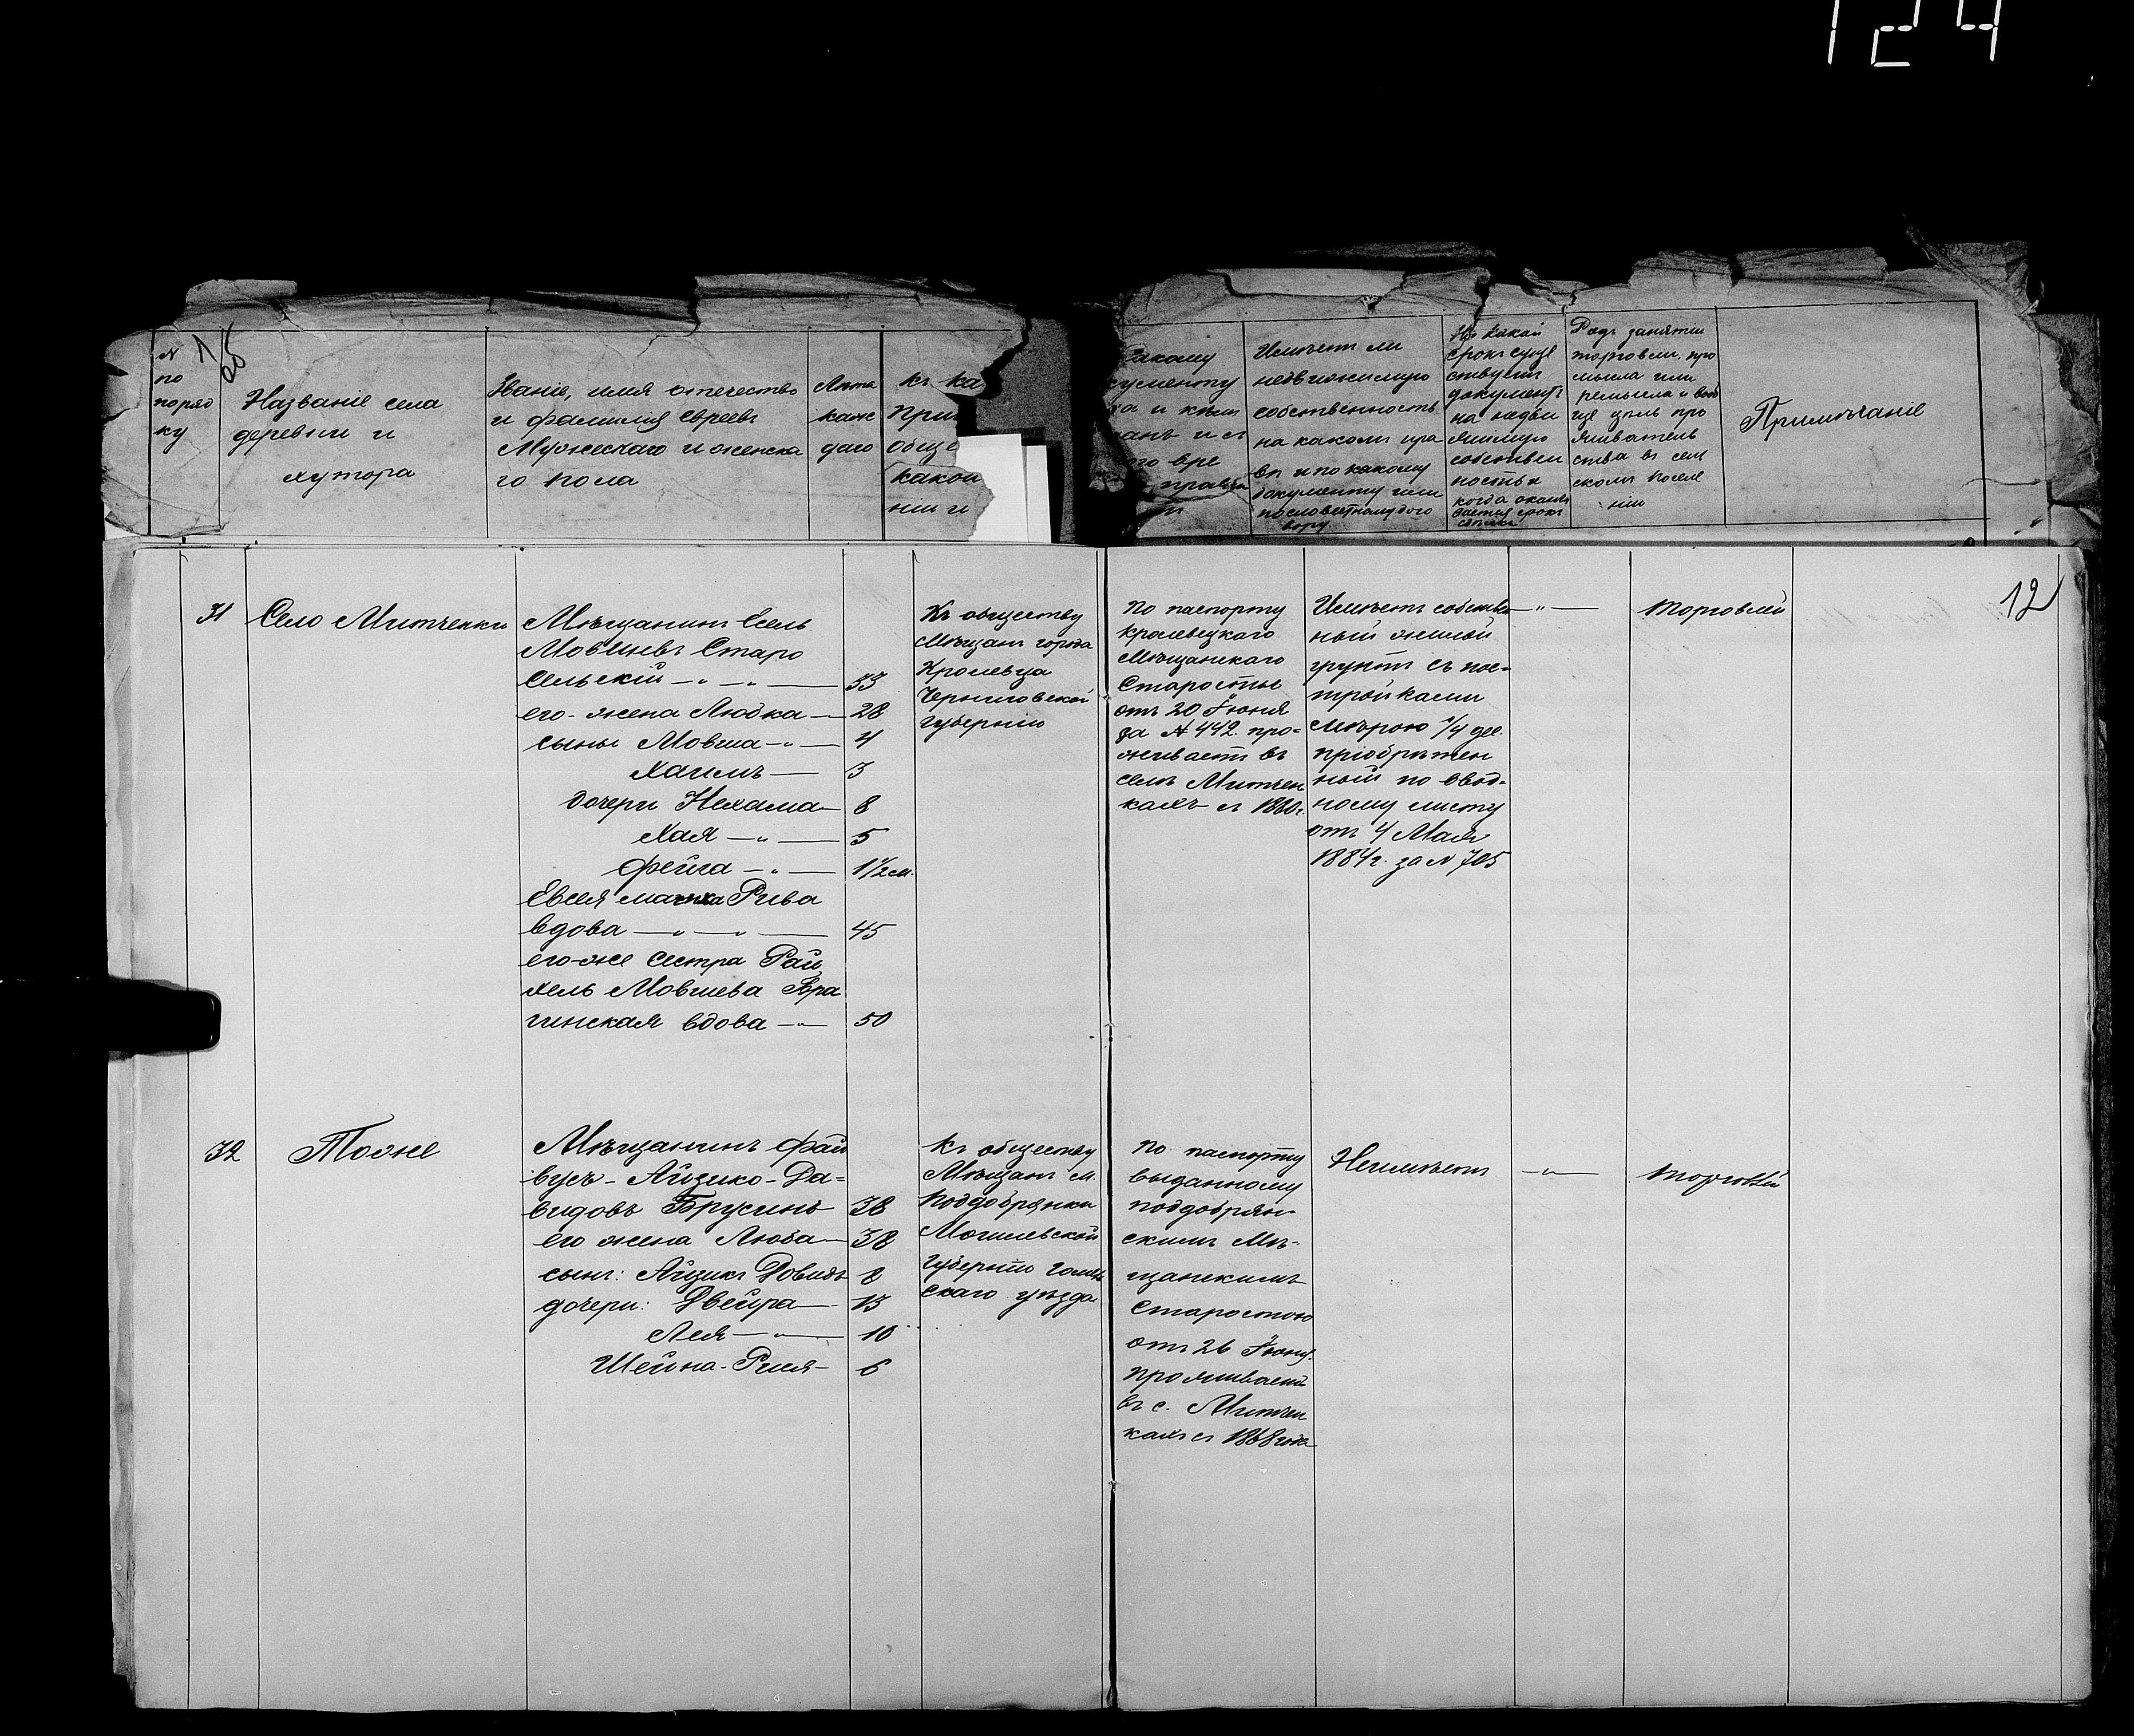 124
№
по
поряд
ку
Названіе села
деревни и
хутора
Званіе, имя отечество
и фамилія евреевъ
Мужескаго и женска
го пола
Лѣта
каж
даго
къ ка
при
обще
какой
ніи и
какому
кументу
а и кѣмъ
анъ и съ
го вре
Имѣетъ ли
недвижимую
собственность
на какомъ пра
вѣ и по какому
документу или
по словестному дого
вору
На какой
срокъ суще
ствуетъ
документъ
на недви
жимую
собствен
ность и
когда оканчи
вается срокъ
Родъ занятій
торговли, про
мысла или
ремысла и вооб
ще цѣль про
живатель
ства въ сел
скомъ посел
ніи
Примѣчаніе
12
31
Село Митченки
Мѣщанинъ Евсель
Мовшевъ Старо
сельскій — " — " — 33
его-жена Людка — 28
сыны Мовша — " — 4
Хаимъ — 3
дочери Нехама — 8
Хая — " — 5
Фейга — " — 1½ м.
Евселя мачиха Рива
вдова — " — " — 45
его-же сестра Рай
хель Мовшева Бра
гинская вдова — " — 50
Къ обществу
Мѣщанъ города
Кролевца
Черниговской
губерніи
По паспорту
Кролевецкаго
Мѣщанскаго
Старосты
отъ 20 Іюня
за № 442. про=
живаетъ въ
селѣ Митчен
кахъ съ 1860 г.
Имѣетъ собствен
ный жилой
грунтъ съ пос=
тройками
мѣрою ¼ дес.
пріобрѣтен
ный по ввод=
ному листу
отъ 4 Мая
1884 г. за № 705
— " —
торговлей
32
Тоже
Мѣщанинъ Фай
вусъ-Айзико-Да=
видовъ Брусинъ 38
его жена Люба — 38
сынъ: Айзикъ Довидъ 8
дочери: Двейра — 13
Лея — " — 10
Шейна-Рися — 6
Къ обществу
Мѣщанъ м.
Поддобрянки
Могилевской
губерніи Гомель
скаго уѣзда
По паспорту
выданному
поддобрян-
скимъ Мѣ-
щанскимъ
Старостою
отъ 26 Іюня.
проживаетъ
въ с. Митчен
кахъ съ 1868 года
Неимѣетъ
— " —
торговлей